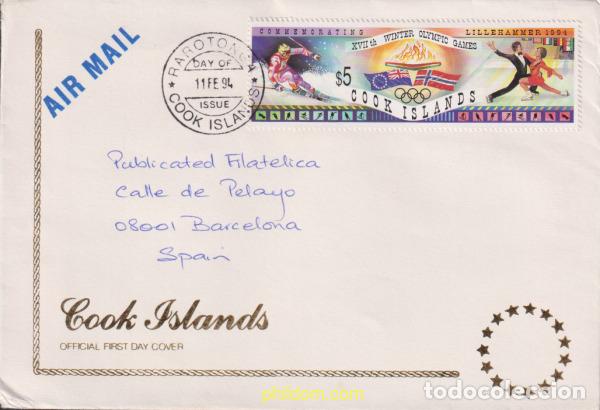 AIR MAIL
RAROTONGA
DAY OF
11 FE 94
ISSUE
COOK ISLANDS
COMMEMORATING
LILLEHAMMER 1994
XVIIth WINTER OLYMPIC GAMES
$5
COOK ISLANDS
Publicated Filatelica
Calle de Pelayo
08001 Barcelona
Spain
Cook Islands
OFFICIAL FIRST DAY COVER
phildom.com
todocoleccion.net